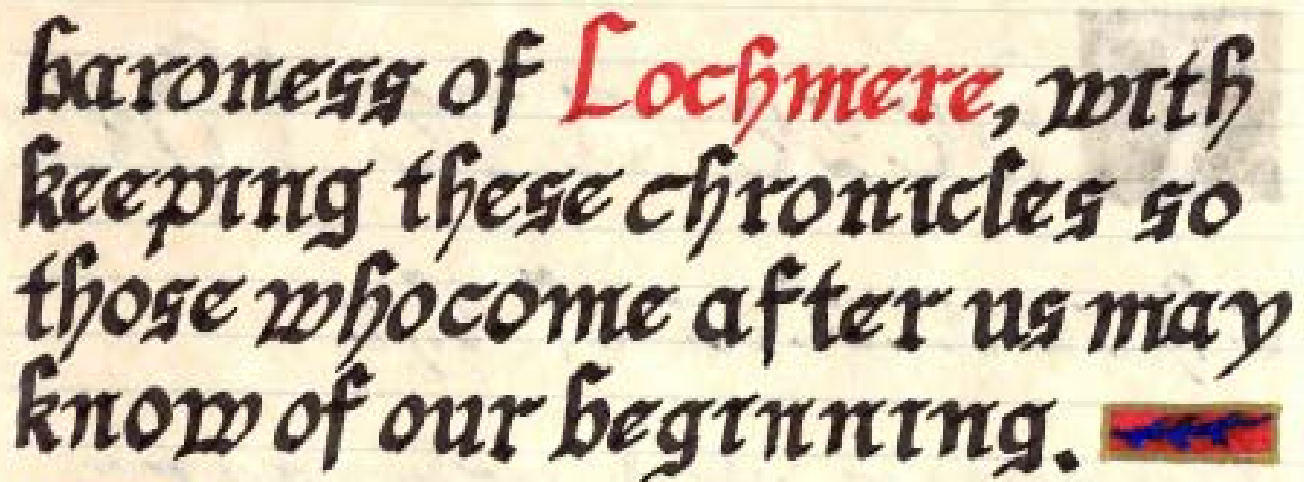 baroness of Lochmere, with
keeping these chronicles so
those whocome after us may
know of our beginning.